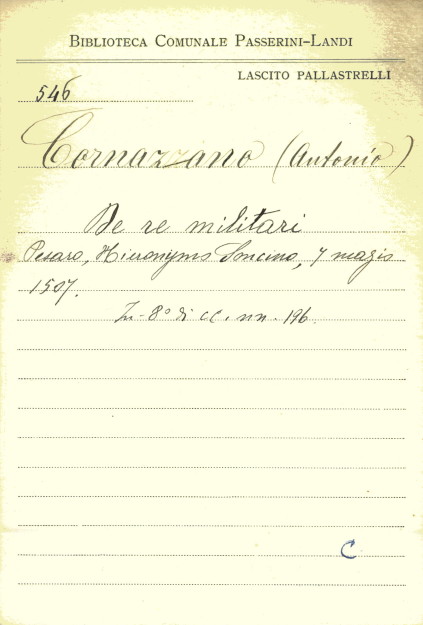 BIBLIOTECA COMUNALE PASSERINI-LANDI
LASCITO PALLASTRELLI
546
Cornazzano (Antonio)
De re militari
Pesaro, Hieronyms Soncino, 7 magis
1507.
In-8° di cc. nn. 196.
C